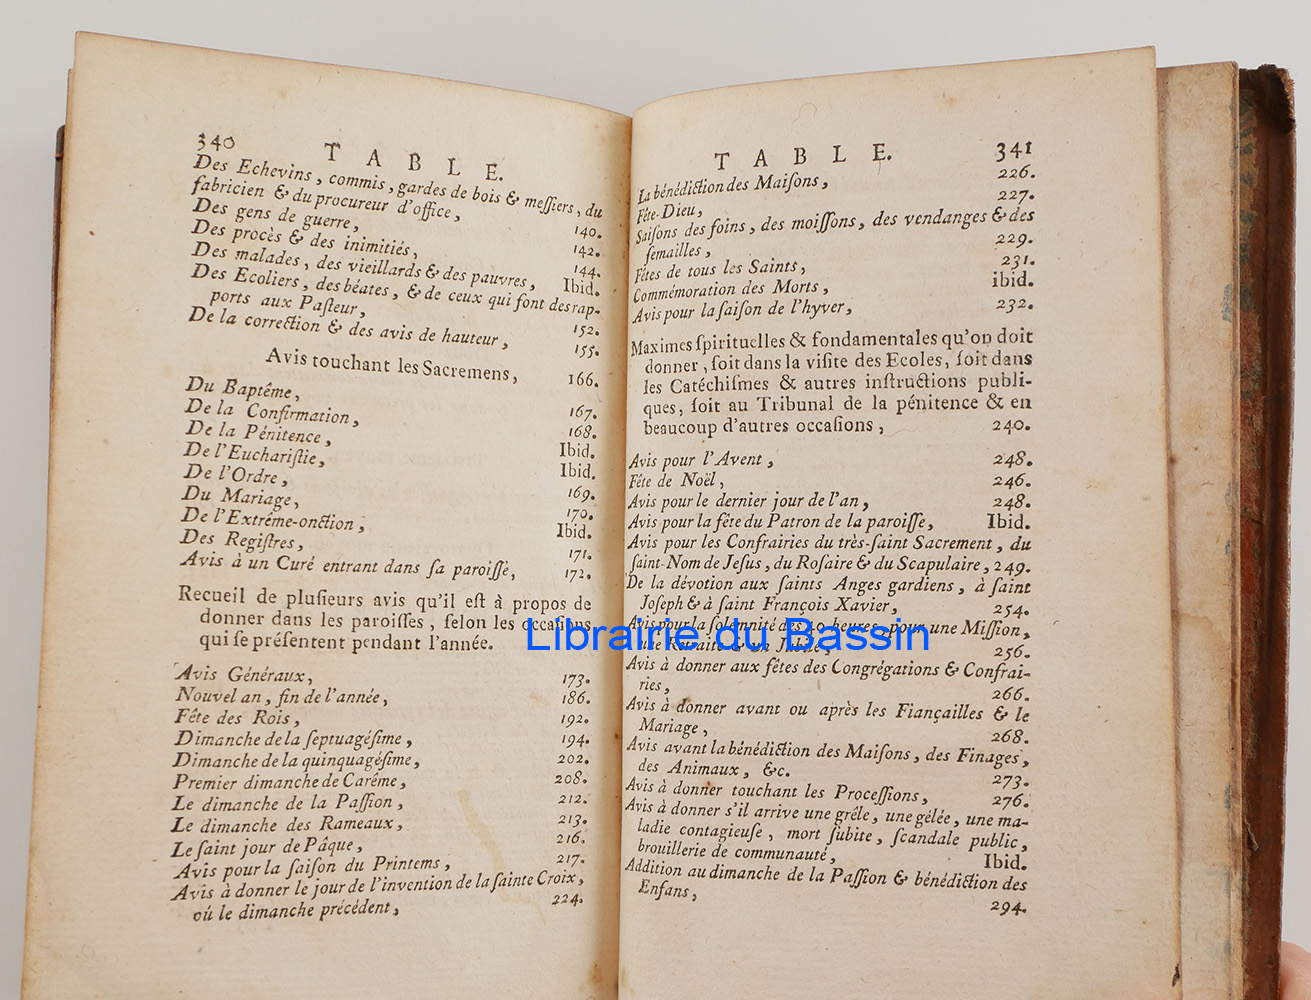 340 TABLE.
Des Echevins, commis, gardes de bois & meſſiers, du
fabricien & du procureur d'office, 140.
Des gens de guerre, 142.
Des procès & des inimitiés, 144.
Des malades, des vieillards & des pauvres, Ibid.
Des Ecoliers, des béates, & de ceux qui font des rap-
ports aux Paſteur, 152.
De la correction & des avis de hauteur, 155.
Avis touchant les Sacremens, 166.
Du Baptême, 167.
De la Confirmation, 168.
De la Pénitence, Ibid.
De l'Euchariſtie, Ibid.
De l'Ordre, 169.
Du Mariage, 170.
De l'Extrême-onction, Ibid.
Des Regiſtres, 171.
Avis à un Curé entrant dans ſa paroiſſe, 172.
Recueil de pluſieurs avis qu'il eſt à propos de
donner dans les paroiſſes, ſelon les occaſions
qui ſe préſentent pendant l'année.
Avis Généraux, 173.
Nouvel an, fin de l'année, 186.
Fête des Rois, 192.
Dimanche de la ſeptuagéſime, 194.
Dimanche de la quinquagéſime, 202.
Premier dimanche de Carême, 208.
Le dimanche de la Paſſion, 212.
Le dimanche des Rameaux, 213.
Le ſaint jour de Pâque, 216.
Avis pour la ſaiſon du Printems, 217.
Avis à donner le jour de l'invention de la ſainte Croix,
où le dimanche précédent, 224.
TABLE. 341
La bénédiction des Maiſons, 226.
Fête-Dieu, 227.
Saiſons des foins, des moiſſons, des vendanges & des
ſemailles, 229.
Fêtes de tous les Saints, 231.
Commémoration des Morts, ibid.
Avis pour la ſaiſon de l'hyver, 232.
Maximes ſpirituelles & fondamentales qu'on doit
donner, ſoit dans la viſite des Ecoles, ſoit dans
les Catéchiſmes & autres inſtructions publi-
ques, ſoit au Tribunal de la pénitence & en
beaucoup d'autres occaſions, 240.
Avis pour l'Avent, 248.
Fête de Noël, 246.
Avis pour le dernier jour de l'an, 248.
Avis pour la fête du Patron de la paroiſſe, Ibid.
Avis pour les Confrairies du très-ſaint Sacrement, du
ſaint-Nom de Jeſus, du Roſaire & du Scapulaire, 249.
De la dévotion aux ſaints Anges gardiens, à ſaint
Joſeph & à ſaint François Xavier, 254.
Avis pour la ſolemnité des 40 heures, pour une Miſſion,
une Retraite & un Jubilé, 256.
Avis à donner aux fêtes des Congrégations & Confrai-
ries, 266.
Avis à donner avant ou après les Fiançailles & le
Mariage, 268.
Avis avant la bénédiction des Maiſons, des Finages,
des Animaux, &c. 273.
Avis à donner touchant les Proceſſions, 276.
Avis à donner s'il arrive une grêle, une gélée, une ma-
ladie contagieuſe, mort ſubite, ſcandale public,
brouillerie de communauté, Ibid.
Addition au dimanche de la Paſſion & bénédiction des
Enfans, 294.
Librairie du Bassin